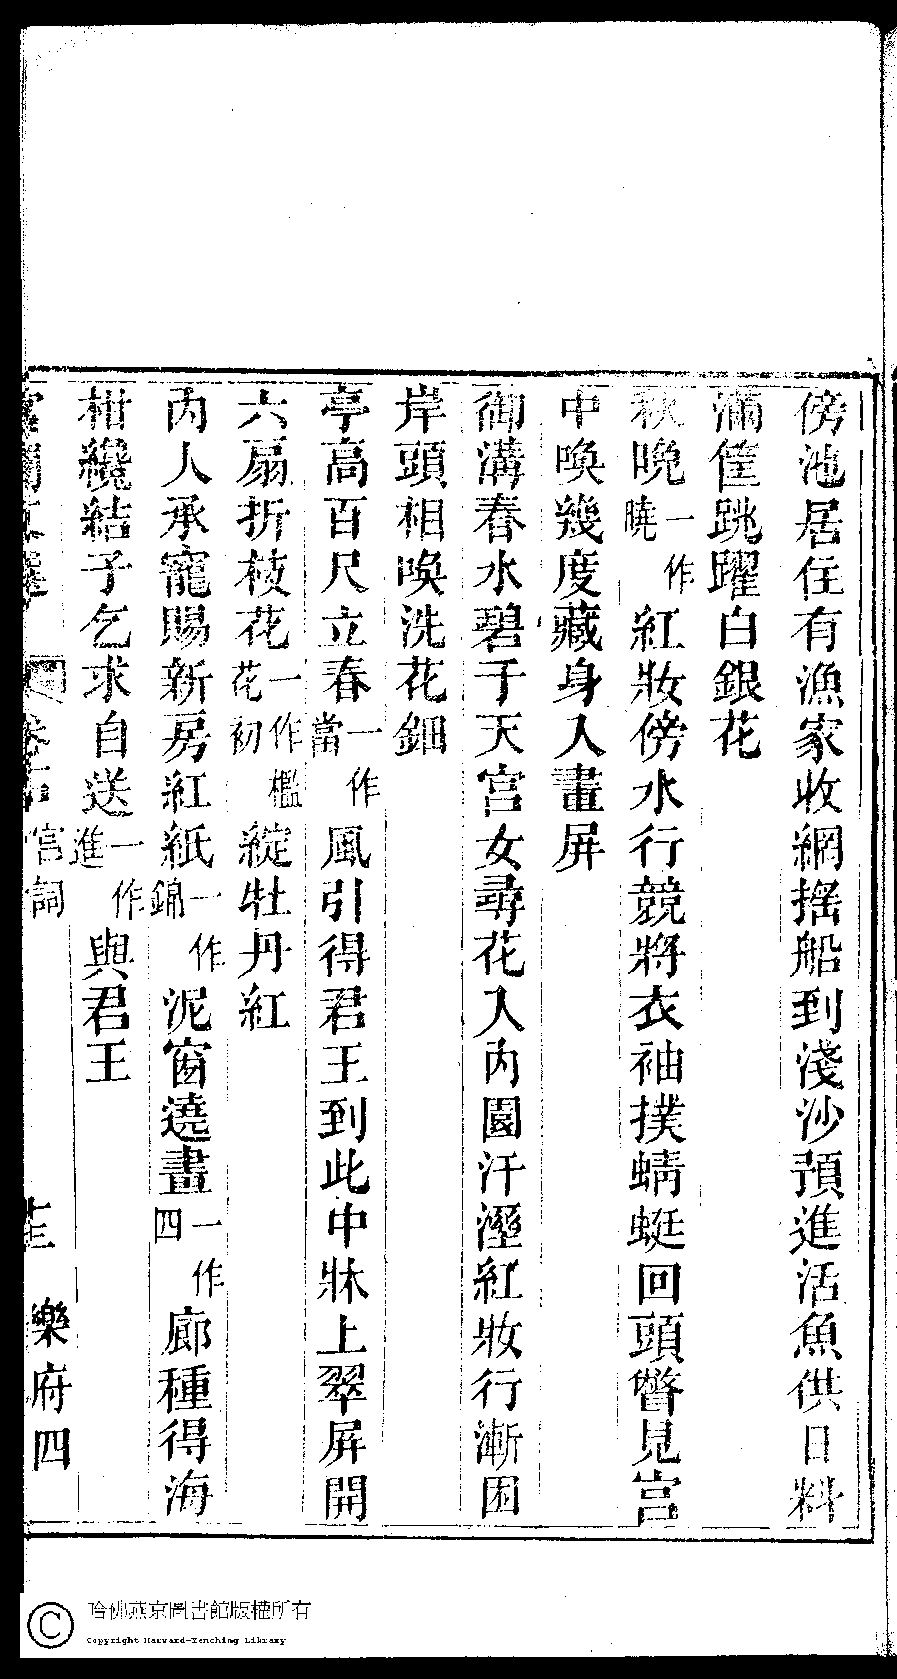 傍池居住有漁家收網搖船到淺沙預進活魚供日料
滿筐跳躍白銀花
秋晚一作曉紅妝傍水行競將衣袖撲蜻蜓回頭瞥見宮
中喚幾度藏身入畫屏
御溝春水碧于天宮女尋花入內園汗溼紅妝行漸困
岸頭相喚洗花鈿
亭高百尺立春一作當風引得君王到此中牀上翠屏開
六扇折枝花一作檻花初綻牡丹紅
內人承寵賜新房紅紙一作錦泥窗遶畫一作四廊種得海
柑纔結子乞求自送一作進與君王
卷十 宮詞 樂府四
哈佛燕京圖書館版權所有
Copyright Harvard-Yenching Library